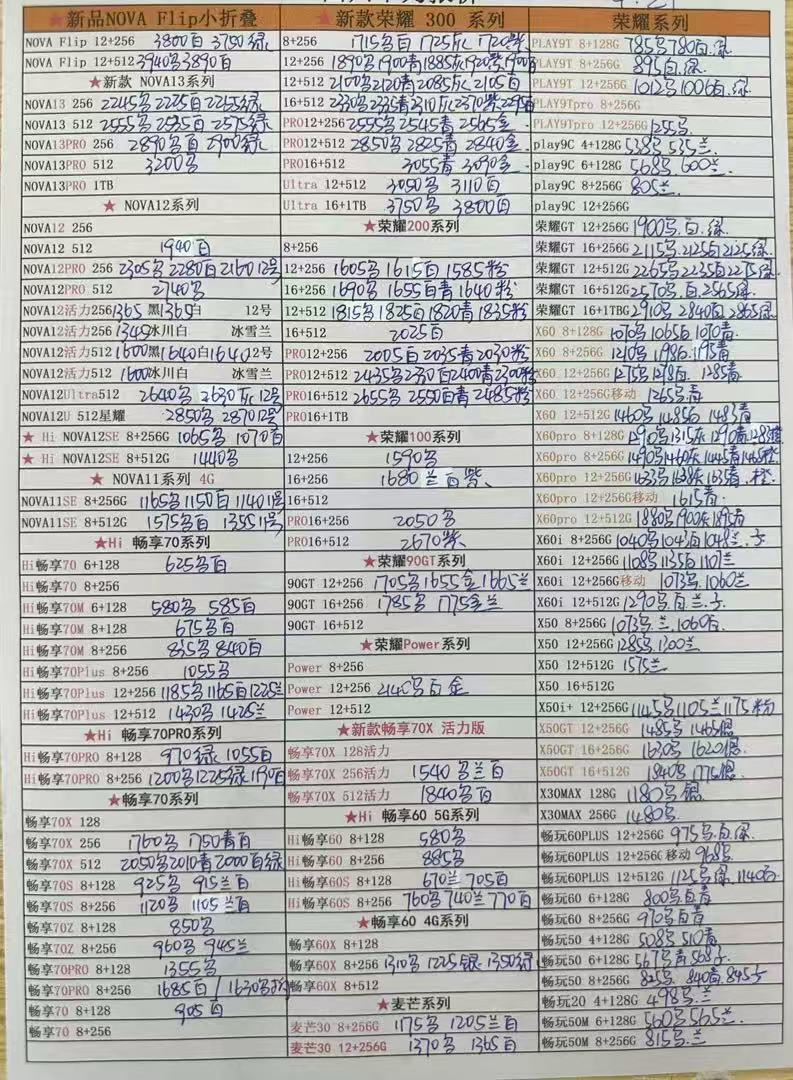 ★新品NOVA Flip小折叠
NOVA Flip 12+256 3800白 3750绿
NOVA Flip 12+512 3940名3890白
★新款 NOVA13系列
NOVA13 256 2245名 2225白 2265绿
NOVA13 512 2555名 2535白 2575绿
NOVA13PRO 256 2890名白 2900绿
NOVA13PRO 512 3200名
NOVA13PRO 1TB
★ NOVA12系列
NOVA12 256
NOVA12 512 1940白
NOVA12PRO 256 2305名 2280白 2160 12号
NOVA12PRO 512 2740名
NOVA12活力256 1365黑1365白 12号
NOVA12活力256 1345冰川白 冰雪兰
NOVA12活力512 1600黑1640白1640 12号
NOVA12活力512 1600冰川白 冰雪兰
NOVA12Ultra512 2640名 2630灰 12号
NOVA12U 512星耀 2850名 2870 12号
★ Hi NOVA12SE 8+256G 1065名 1070白
★ Hi NOVA12SE 8+512G 1440名
★ NOVA11系列 4G
NOVA11SE 8+256G 1165名1150白 1140 11号
NOVA11SE 8+512G 1575名白 1355 11号
★Hi 畅享70系列
Hi畅享70 6+128 625名白
Hi畅享70 8+256
Hi畅享70M 6+128 580名 585白
Hi畅享70M 8+128 675名白
Hi畅享70M 8+256 835名840白
Hi畅享70Plus 8+256 1055名
Hi畅享70Plus 12+256 1185名1165白1225兰
Hi畅享70Plus 12+512 1430名 1425兰
★Hi 畅享70PRO系列
Hi畅享70PRO 8+128 970绿 1055白
Hi畅享70PRO 8+256 1200名1225绿1190白
★畅享70系列
畅享70X 128
畅享70X 256 1760名 1750青白
畅享70X 512 2050名2010青2000白绿
畅享70S 8+128 925名 915兰白
畅享70S 8+256 1120名 1105兰白
畅享70Z 8+128 850名
畅享70Z 8+256 960名 945兰
畅享70PRO 8+128 1355名
畅享70PRO 8+256 1685白/1630名
畅享70 8+128 905白
畅享70 8+256
★新款荣耀 300 系列
8+256 1715名白 1725灰 1720紫
12+256 1890名1900青1885灰1920紫1900白
12+512 2100名2120青2085灰2105白
16+512 2330名2335青2310灰2370紫2295白
PRO12+256 2555名 2545青 2565金
PRO12+512 2850名 2825青 2840金
PRO16+512 3055青 3090金
Ultra 12+512 3050名 3110白
Ultra 16+1TB 3750名 3800白
★荣耀200系列
8+256
12+256 1605名 1615白 1585粉
16+256 1690名 1655白青 1640粉
12+512 1815名 1825白 1820青 1835粉
16+512 2025白
PRO12+256 2005白 2035青 2030粉
PRO12+512 2435名2330白2400青2300粉
PRO16+512 2655名 2550白青 2485粉
PRO16+1TB
★荣耀100系列
12+256 1590名
16+256 1680兰白紫
16+512
PRO16+256 2050名
PRO16+512 2670紫
★荣耀90GT系列
90GT 12+256 1705名1655金1665兰
90GT 16+256 1785名 1775金兰
90GT 16+512
★荣耀Power系列
Power 8+256
Power 12+256 2140名白金
Power 12+512
★新款畅享70X 活力版
畅享70X 128活力
畅享70X 256活力 1540名兰白
畅享70X 512活力 1840名白
★Hi 畅享60 5G系列
Hi畅享60 8+128 580名
Hi畅享60 8+256 885名
Hi畅享60S 8+128 670兰 705白
Hi畅享60S 8+256 760名740兰770白
★畅享60 4G系列
畅享60X 8+128
畅享60X 8+256 1310名 1225银 1350绿
畅享60X 8+512
★麦芒系列
麦芒30 8+256G 1175名 1205兰白
麦芒30 12+256G 1370名 1365白
荣耀系列
PLAY9T 8+128G 785名780白.绿
PLAY9T 8+256G 895白.绿
PLAY9T 12+256G 1012名1006白.绿
PLAY9Tpro 8+256G
PLAY9Tpro 12+256G 1255名
play9C 4+128G 538名 535兰
play9C 6+128G 568名 600兰
play9C 8+256G 805兰
play9C 12+256G
荣耀GT 12+256G 1900名.白.绿
荣耀GT 16+256G 2115名2125白2125绿
荣耀GT 12+512G 2265名2235白2275绿
荣耀GT 16+512G 2570名.白.2565绿
荣耀GT 16+1TBG 2910名 2840白 2865绿
X60 8+128G 1070名1065白1070青
X60 8+256G 1210名1198白1195青
X60 12+256G 1275名1278白 1285青
X60 12+256G移动 1265名青
X60 12+512G 1460名1485白 1483青
X60pro 8+128G 1290名1315灰1290青1283橙
X60pro 8+256G 1490名1460灰1445青1465橙
X60pro 12+256G 1633名1638灰1635青.橙
X60pro 12+256G移动 1615青
X60pro 12+512G 1880名1900灰1895青
X60i 8+256G 1040名1043白1048兰.子
X60i 12+256G 1108名1135白1107兰
X60i 12+256G移动 1073名.1060兰
X60i 12+512G 1290名.白.兰.子
X50 8+256G 1073名.兰.1060白
X50 12+256G 1285名.1300兰
X50 12+512G 1575兰
X50 16+512G
X50i+ 12+256G 1145名1105兰1175粉
X50GT 12+256G 1485名 1465银
X50GT 16+256G 1630名 1620银
X50GT 16+512G 1840名 1775银
X30MAX 128G 1180名.银
X30MAX 256G 1480名
畅玩60PLUS 12+256G 975名.白.绿
畅玩60PLUS 12+256G移动 968名
畅玩60PLUS 12+512G 1125名.绿.1140白
畅玩60 6+128G 800名白青
畅玩60 8+256G 970名白青
畅玩50 4+128G 508名 510青
畅玩50 6+128G 567名青568子
畅玩50 8+256G 825名.840青.845子
畅玩20 4+128G 498名.兰
畅玩50M 6+128G 560名565兰
畅玩50M 8+256G 815名.兰